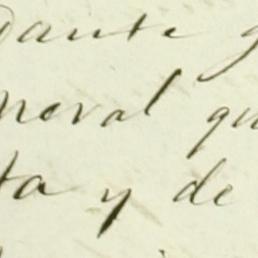 dante g
neral qu
ta y de